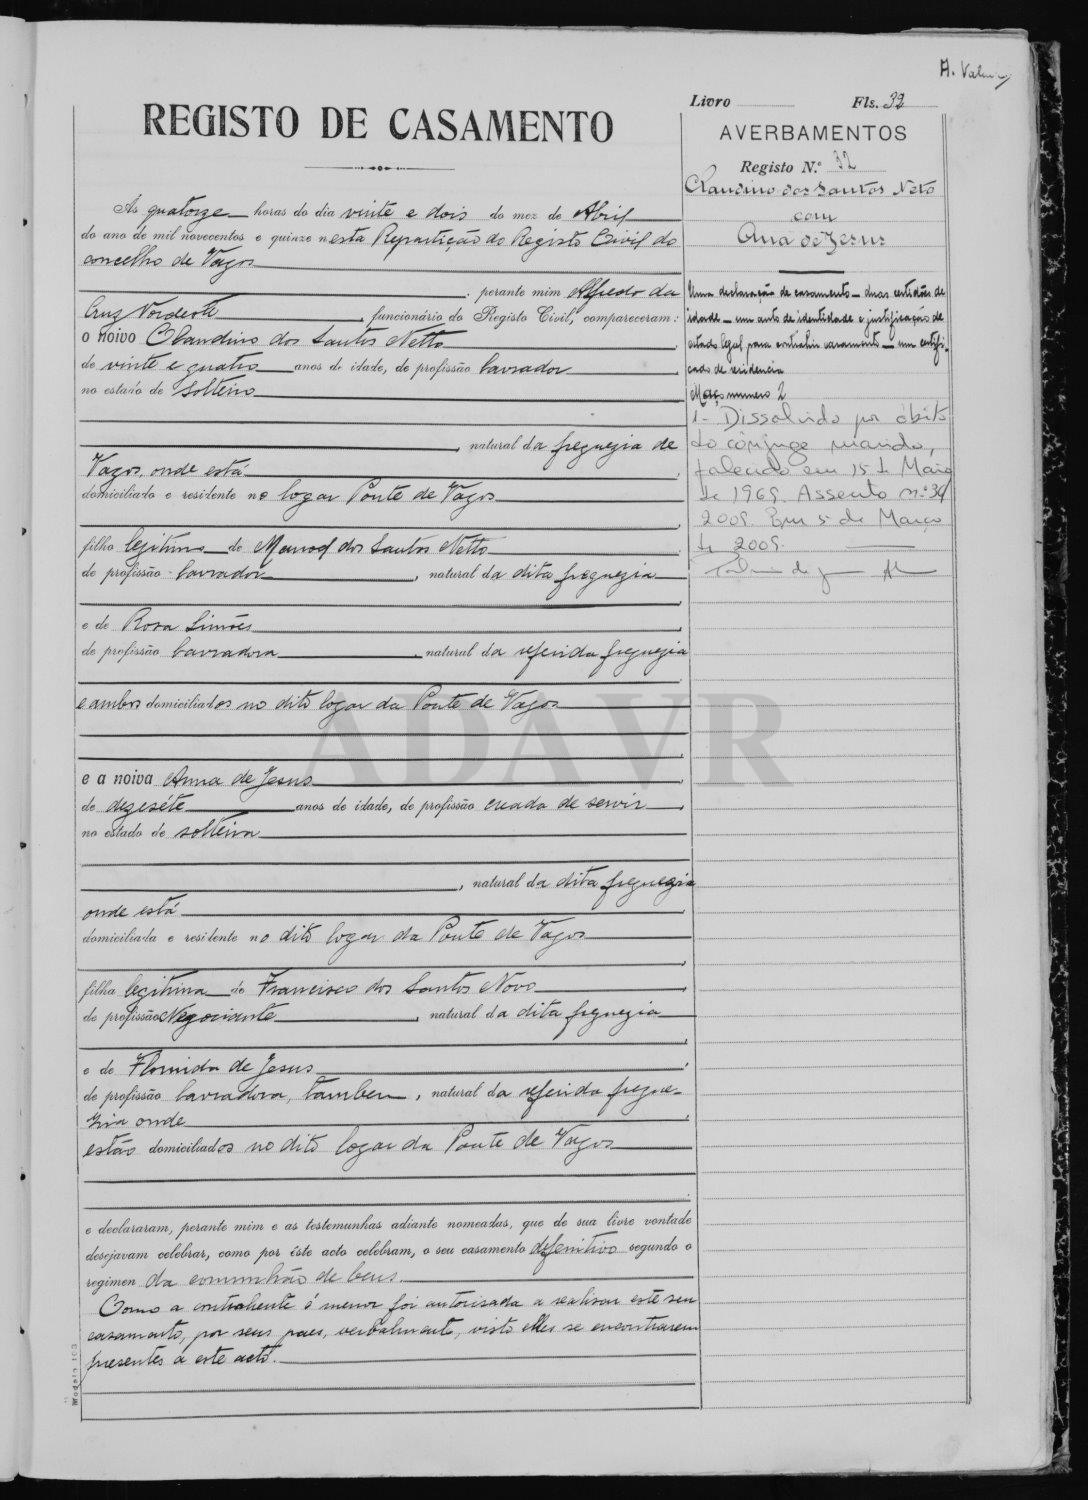 A.
Livro Fls. 32
REGISTO DE CASAMENTO
AVERBAMENTOS
Registo N.º 32
Claudino dos Santos Neto
com
Ana de Jesus
Uma declaração de casamento – duas certidões de
idade – um auto de identidade e justificação de
estado legal para contrahir casamento – um certifi-
cado de residencia
Maço numero 2
1 - Dissolvido por óbito
do cônjuge marido,
falecido em 15 de Maio
de 1969. Assento n.º 34/
2009. Em 5 de Março
de 2009.
Ás quatorze horas do dia vinte e dois do mez de Abril
do ano de mil novecentos e quinze nesta Repartição do Registo Civil do
concelho de Vagos
, perante mim Alfredo da
Cruz Nordeste, funcionário do Registo Civil, compareceram:
o noivo Claudino dos Santos Netto
de vinte e quatro anos de idade, de profissão lavrador
no estado de solteiro
, natural da freguezia de
Vagos, onde está
domiciliado e residente no logar Ponte de Vagos
filho legitimo de Manoel dos Santos Netto
de profissão lavrador, natural da dita freguezia
e de Rosa Simões
de profissão lavradora, natural da referida freguezia
e ambos domiciliados no dito logar da Ponte de Vagos
e a noiva Anna de Jesus
de dezeséte anos de idade, de profissão creada de servir
no estado de solteira
, natural da dita freguezia
onde está
domiciliada e residente no dito logar da Ponte de Vagos
filha legitima de Francisco dos Santos Novo
de profissão Negociante, natural da dita freguezia
e de Florinda de Jesus
de profissão lavradora, tambem, natural da referida fregue-
zia onde
estão domiciliados no dito logar da Ponte de Vagos
e declararam, perante mim e as testemunhas adiante nomeadas, que de sua livre vontade
desejavam celebrar, como por êste acto celebram, o seu casamento defenitivo segundo o
regimen da comunhão de bens.
Como a contrahente é menor foi autorisada a realisar este seu
casamento, por seus paes, verbalmente, visto elles se encontrarem
presentes a este acto.
Modelo 103
ADAVR